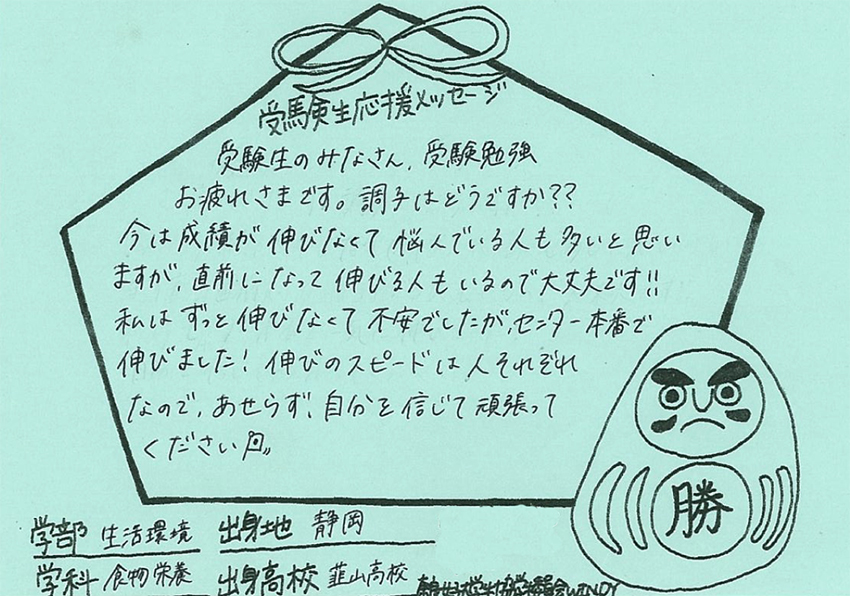 受験生応援メッセージ
受験生のみなさん、受験勉強
お疲れさまです。調子はどうですか??
今は成績が伸びなくて悩んでいる人も多いと思い
ますが、直前になって伸びる人もいるので大丈夫です!!
私はずっと伸びなくて不安でしたが、センター本番で
伸びました!伸びのスピードは人それぞれ
なので、あせらず、自分を信じて頑張って
ください
勝
学部 生活環境 出身地 静岡
学科 食物栄養 出身高校 韮山高校
WINDY